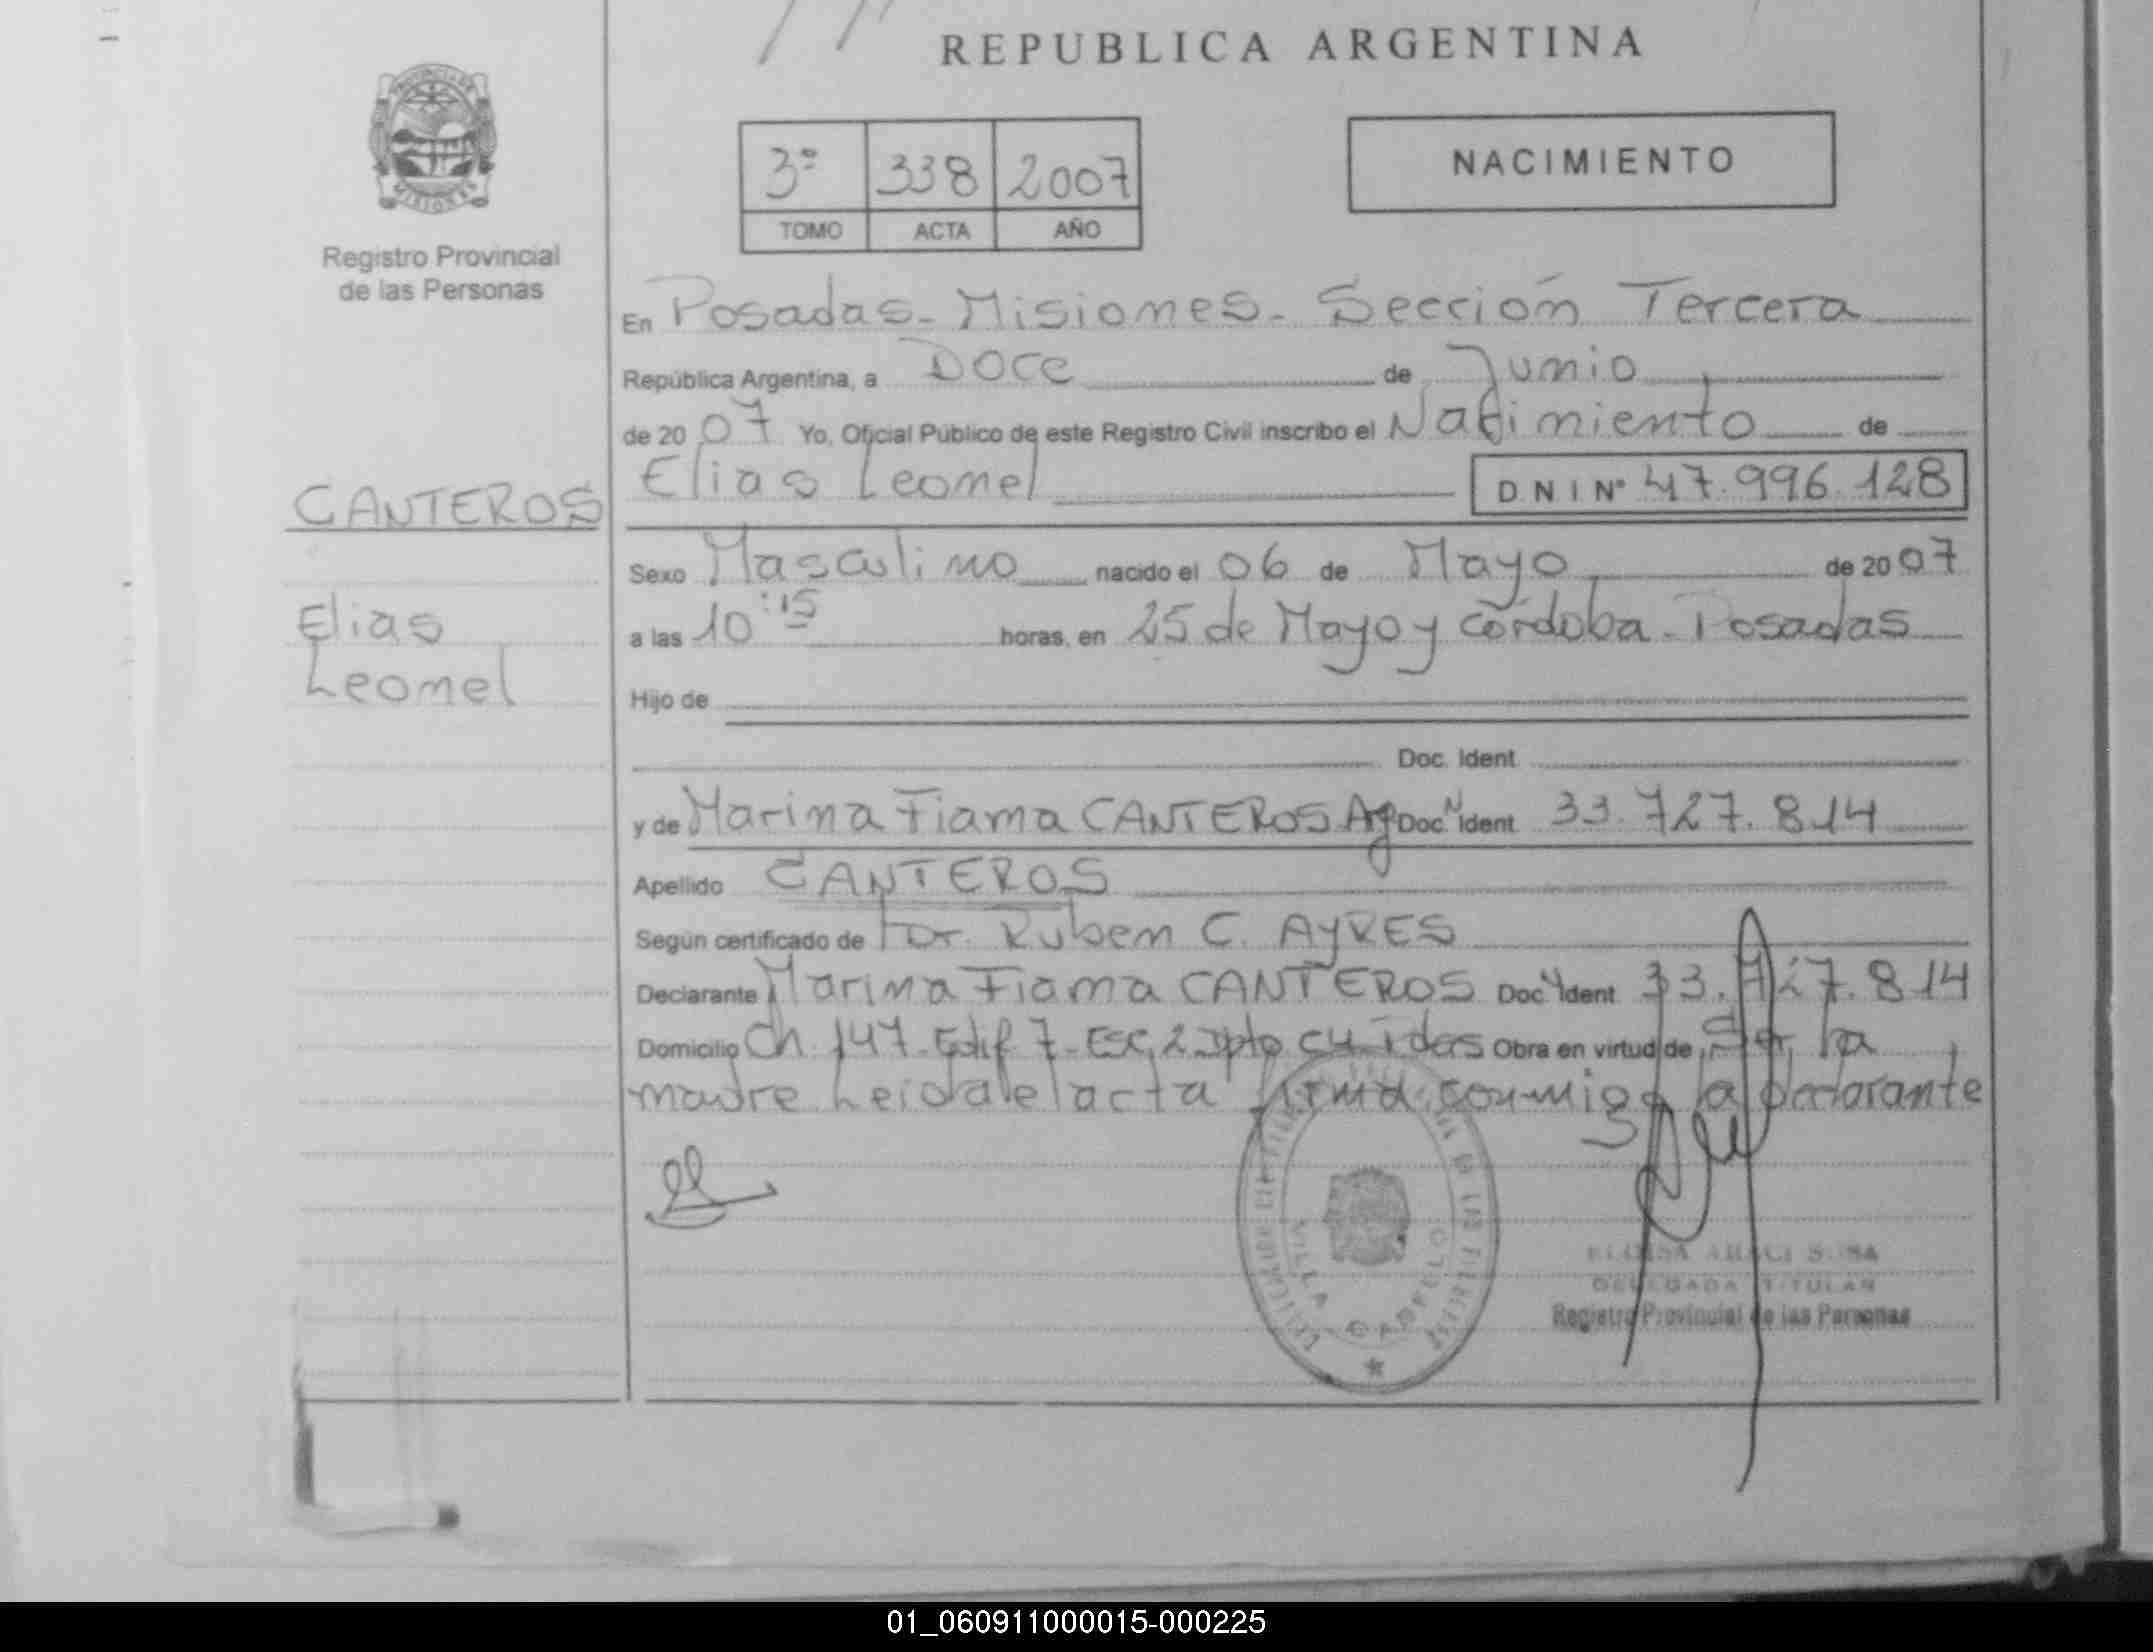 REPUBLICA ARGENTINA
PROVINCIA DE
MISIONES
Registro Provincial
de las Personas
3º 338 2007
TOMO ACTA AÑO
NACIMIENTO
En Posadas - Misiones - Sección Tercera
República Argentina, a Doce de Junio
de 2007 Yo, Oficial Público de este Registro Civil inscribo el Nacimiento de
Elias Leonel DNI Nº 47.996.128
CANTEROS
Elias
Leonel
Sexo Masculino nacido el 06 de Mayo de 2007
a las 10:15 horas, en 25 de Mayo y Córdoba - Posadas
Hijo de
Doc. Ident.
y de Marina Fiama CANTEROS Arg Doc. N Ident 33.727.814
Apellido CANTEROS
Según certificado de Dr. Ruben C. AYRES
Declarante Marina Fiama CANTEROS Doc. N Ident 33.727.814
Domicilio Ch. 147 - Edif 7 - Esc. 2 Dpto Obra en virtud de Ser la
madre Leida el acta firma conmigo la declarante
VILLA CABELLO
DELEGADA TITULAR
Registro Provincial de las Personas
01_060911000015-000225